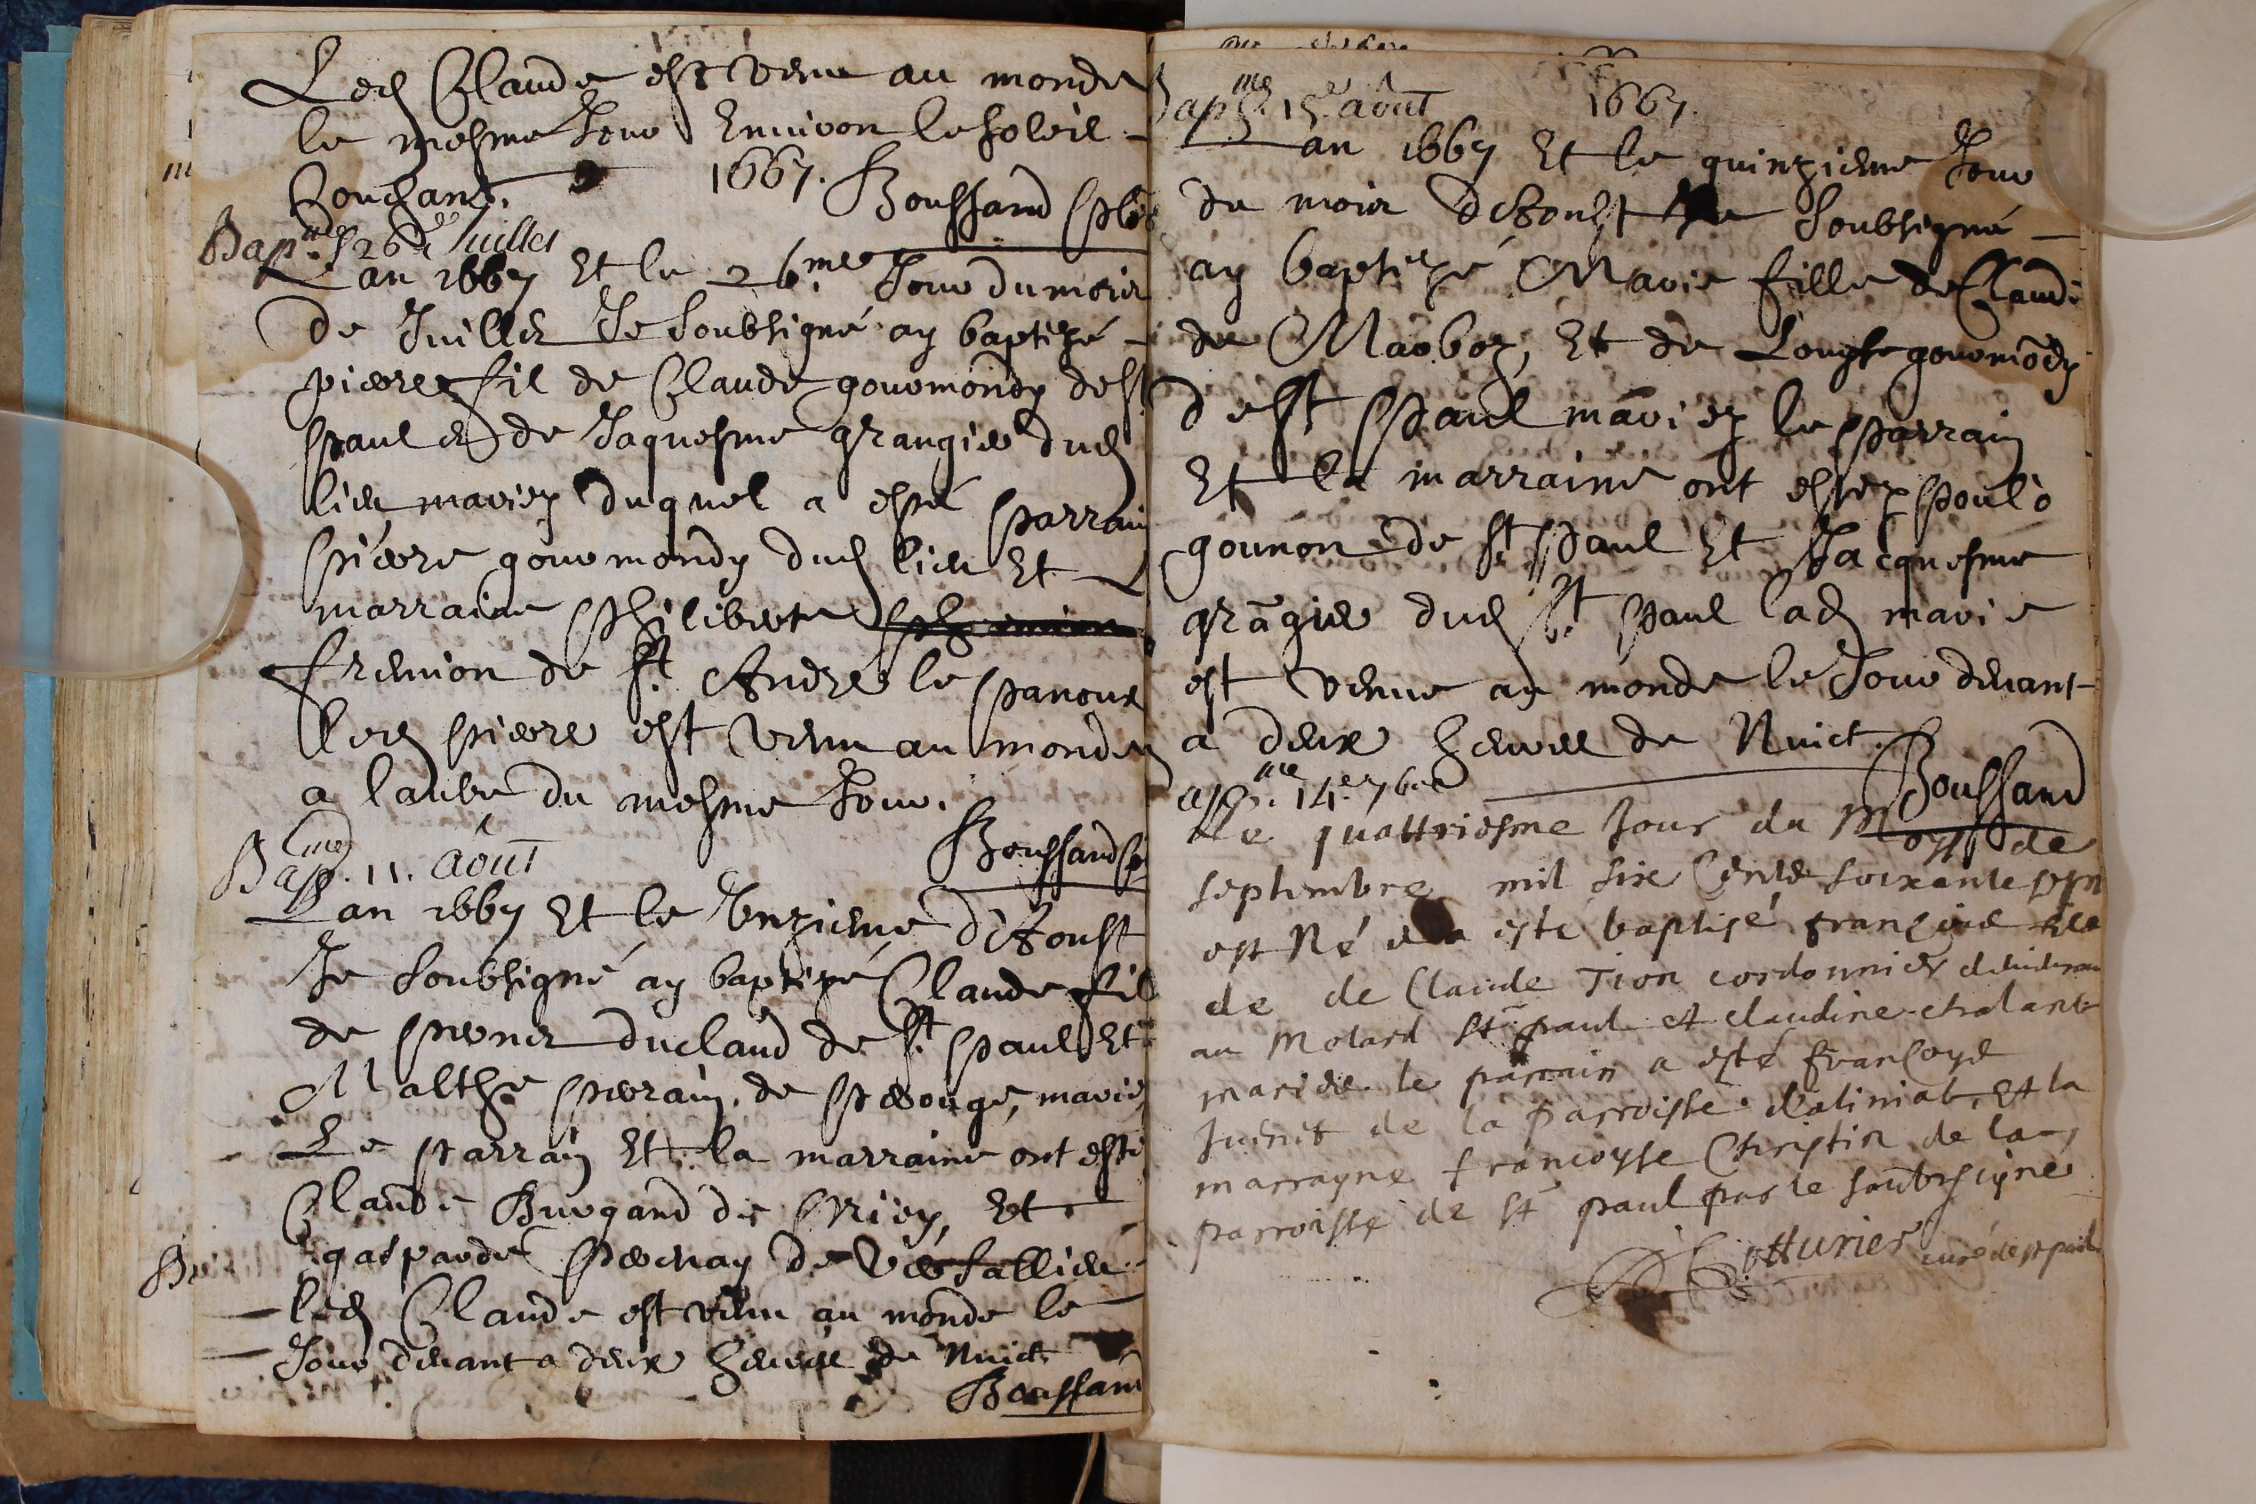 Led Claude est venu au monde
le mesme Jour Enuiron le soleil
Couchant.
1667. Boussand
Bapme 26e Juillet
Lan 1667 Et le 26.me Jour du mois
de Juillet Je Soubsigné ay baptizé
pierre fil de Claude gourmondy de St
paul et de Jaquesme grangier dud
lieu mariez duquel a esté parrain
pierre gourmondy dud lieu Et
marraine philiberte
fremion de St André le panoux
led pierre est venu au monde
a laube du mesme Jour.
Boussand
Bapme. 11. août
Lan 1667 Et le Unzieme d'Aoust
Je Soubsigné ay baptizé Claude fil
de pernet duclaud de St paul Et
Malthe perrain de perouge, mariez
Le parrain Et la marraine ont esté
Claude Burgand de Et
gasparde de Versallieu
led Claude est venu au monde le
Jour deuant a deux heures de Nuict
Boussand
Bapme. 15e août 1667.
Lan 1667 Et le quinzieme Jour
du mois d'Aoust Je Soubsigné
ay baptizé Marie fille de Claude
de Marboz, Et de Louyse gourmody
de St paul mariez le parrain
Et la marraine ont estez
gounon de St paul Et Jacquesme
grāgier dud St paul lad marie
est venue au monde le Jour deuant
a deux heures de Nuict.
Boussand
14e 7bre
Le quattriesme Jour du Moys de
septembre mil six Cents soixante sept
est Né et a esté baptisé françois fils
de de Claude Tion cordonnier demeurant
au Molard St paul et claudine chalant
mariés le parrain a esté françoys
de la parroisse datiniat, Et la
marrayne francoyse Christin de la
parroisse de St paul par le soubsigné
Cotturier curé de st paul